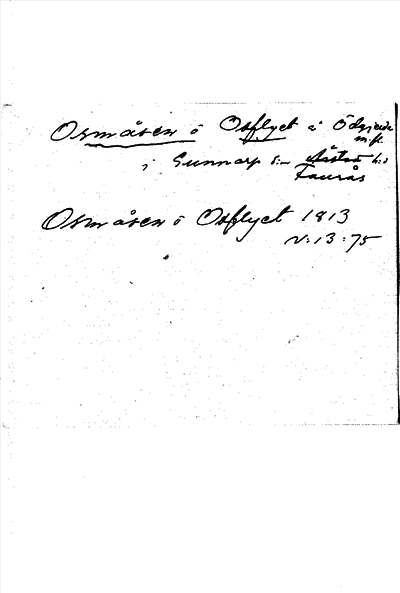 Osmåsen o Osflyet å Ödgärde
m. fl.
i Gunnarp s:n Årstad h:d
Faurås
Osmåsen o Osflyet 1813
N:13:75